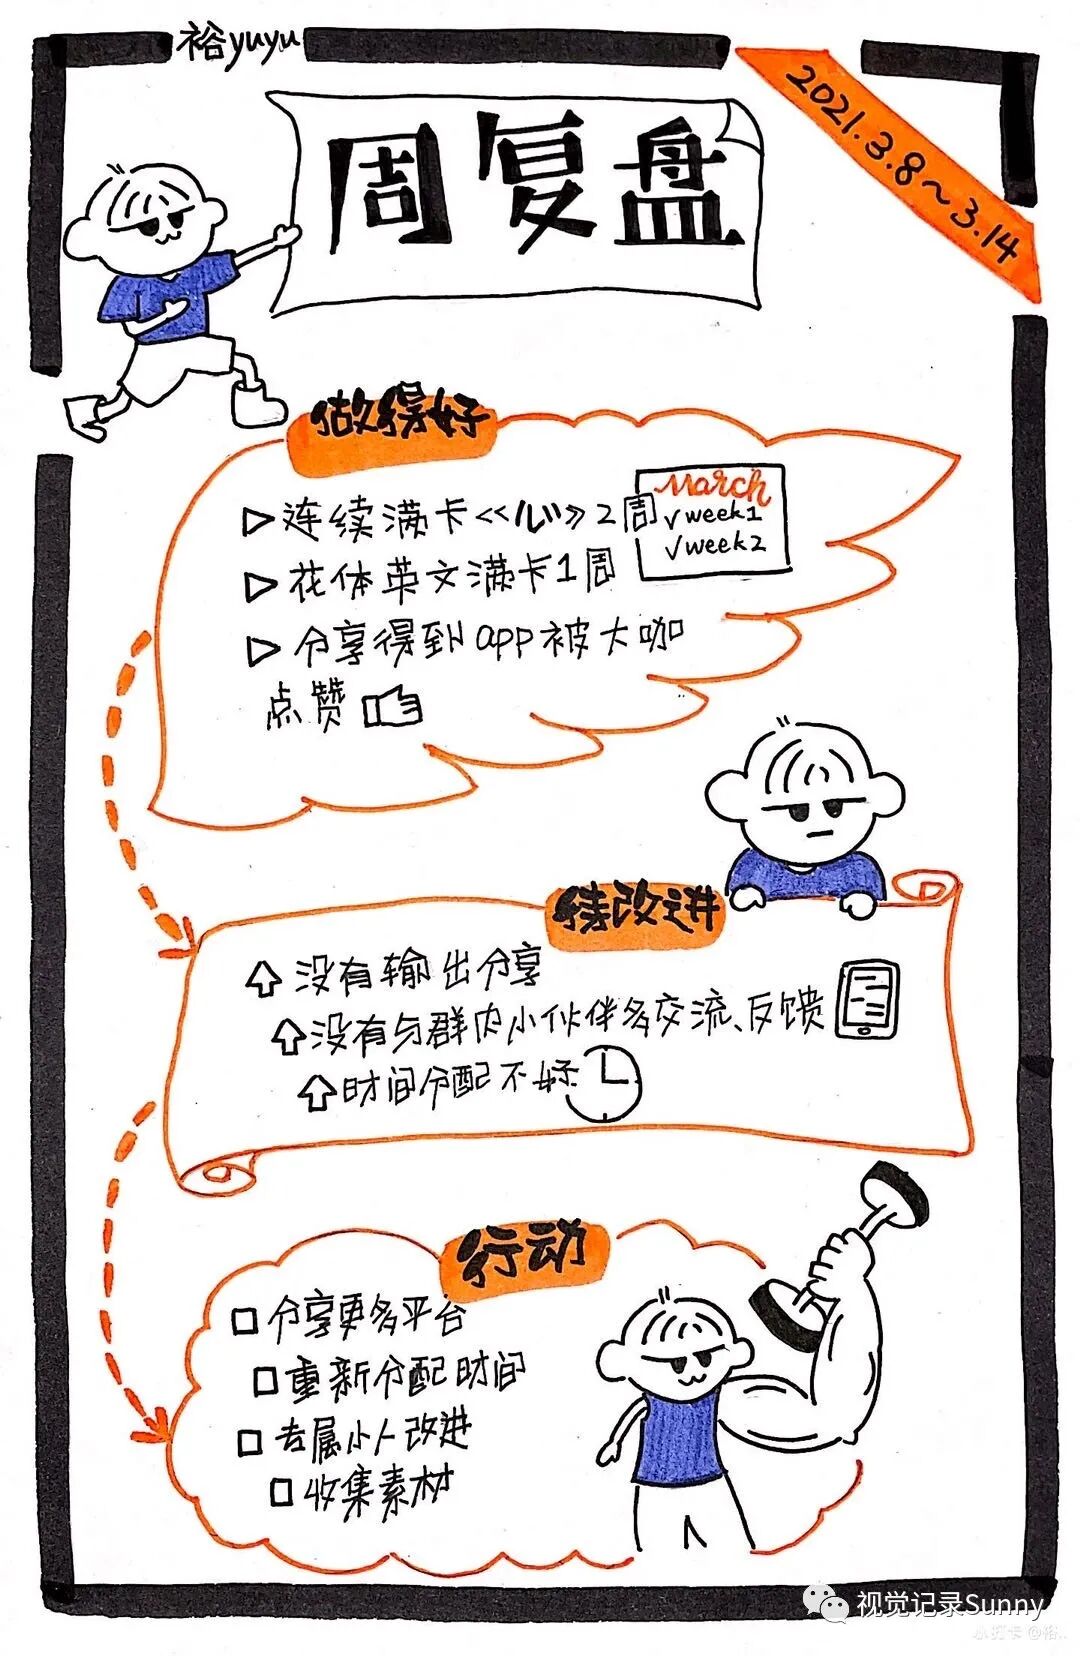 裕yuyu
2021.3.8~3.14
周复盘
做得好
▷连续满卡《心》2周
March
√week1
√week2
▷花体英文满卡1周
▷分享得到app被大咖
点赞
待改进
没有输出分享
没有与群内小伙伴多交流、反馈
时间分配不好
行动
□分享更多平台
□重新分配时间
□专属小人改进
□收集素材
视觉记录Sunny
小打卡 @裕..